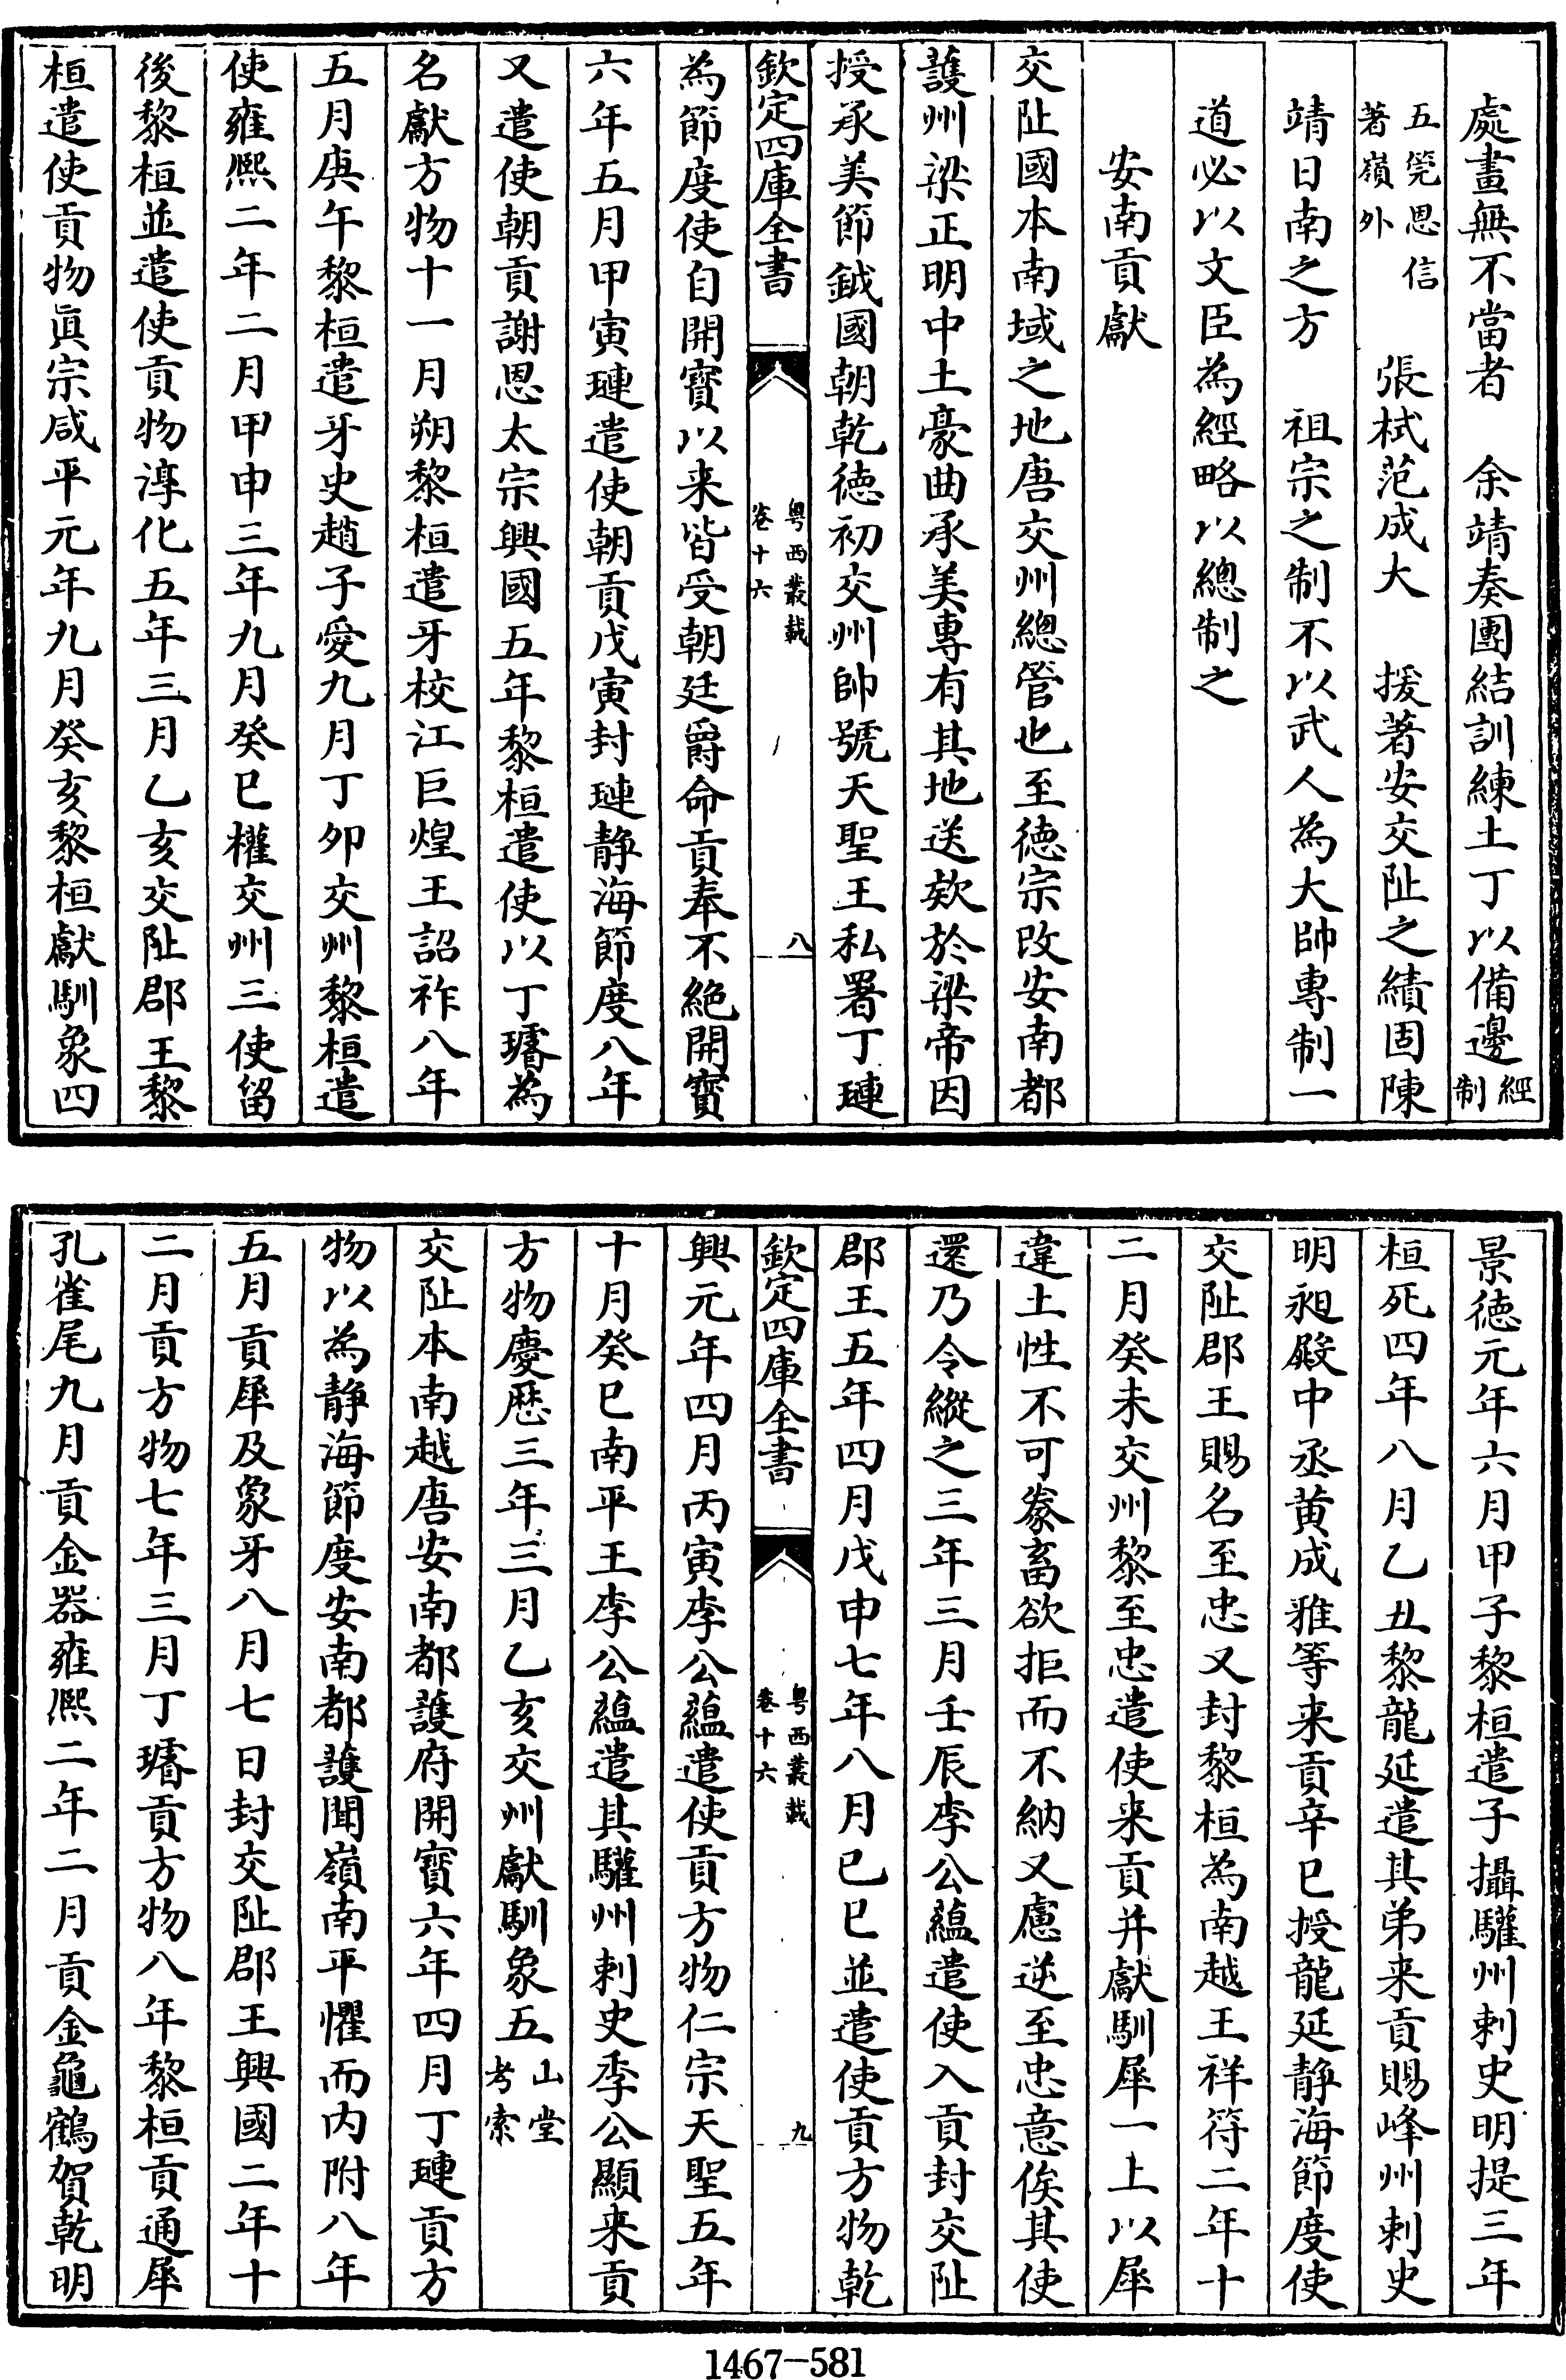 處畫無不當者　余靖奏團結訓練土丁以備邊經制
五筦恩信著嶺外　張栻范成大　援著安交阯之績固陳
靖日南之方　祖宗之制不以武人為大帥專制一
道必以文臣為經略以總制之
安南貢獻
交阯國本南域之地唐交州總管也至德宗改安南都
護州梁正明中土豪曲承美專有其地送欵於梁帝因
授承美節鉞國朝乾德初交州帥號天聖王私署丁璉
欽定四庫全書　粤西叢載卷十六　八
為節度使自開寳以来皆受朝廷爵命貢奉不絶開寳
六年五月甲寅璉遣使朝貢戊寅封璉静海節度八年
又遣使朝貢謝恩太宗興國五年黎桓遣使以丁璿為
名獻方物十一月朔黎桓遣牙校江巨煌王詔祚八年
五月庚午黎桓遣牙史趙子愛九月丁卯交州黎桓遣
使雍熙二年二月甲申三年九月癸巳權交州三使留
後黎桓並遣使貢物淳化五年三月乙亥交阯郡王黎
桓遣使貢物眞宗咸平元年九月癸亥黎桓獻馴象四
景德元年六月甲子黎桓遣子攝驩州刺史明提三年
桓死四年八月乙丑黎龍延遣其弟来貢賜峰州刺史
明昶殿中丞黄成雅等来貢辛巳授龍延静海節度使
交阯郡王賜名至忠又封黎桓為南越王祥符二年十
二月癸未交州黎至忠遣使来貢并獻馴犀一上以犀
違土性不可豢畜欲拒而不納又慮逆至忠意俟其使
還乃令縱之三年三月壬辰李公藴遣使入貢封交阯
郡王五年四月戊申七年八月己巳並遣使貢方物乾
欽定四庫全書　粤西叢載卷十六　九
興元年四月丙寅李公藴遣使貢方物仁宗天聖五年
十月癸巳南平王李公藴遣其驩州刺史季公顯来貢
方物慶厯三年三月乙亥交州獻馴象五山堂考索
交阯本南越唐安南都護府開寳六年四月丁璉貢方
物以為静海節度安南都護聞嶺南平懼而内附八年
五月貢犀及象牙八月七日封交阯郡王興國二年十
二月貢方物七年三月丁璿貢方物八年黎桓貢通犀
孔雀尾九月貢金器雍熙二年二月貢金龜鶴賀乾明
1467-581